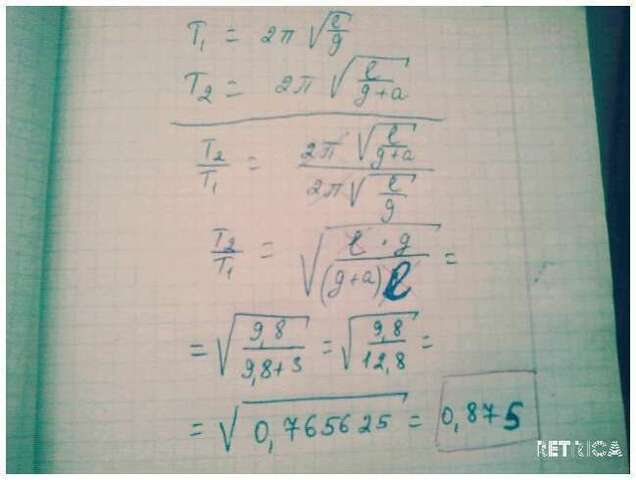 T₁ = 2π √(l/g)
T₂ = 2π √(l/(g+a))
T₂/T₁ = (2π √(l/(g+a)))/(2π √(l/g))
T₂/T₁ = √((l · g)/((g+a) l)) =
= √(9,8/(9,8+3)) = √(9,8/12,8) =
= √(0,765625) = 0,875
RETRICA